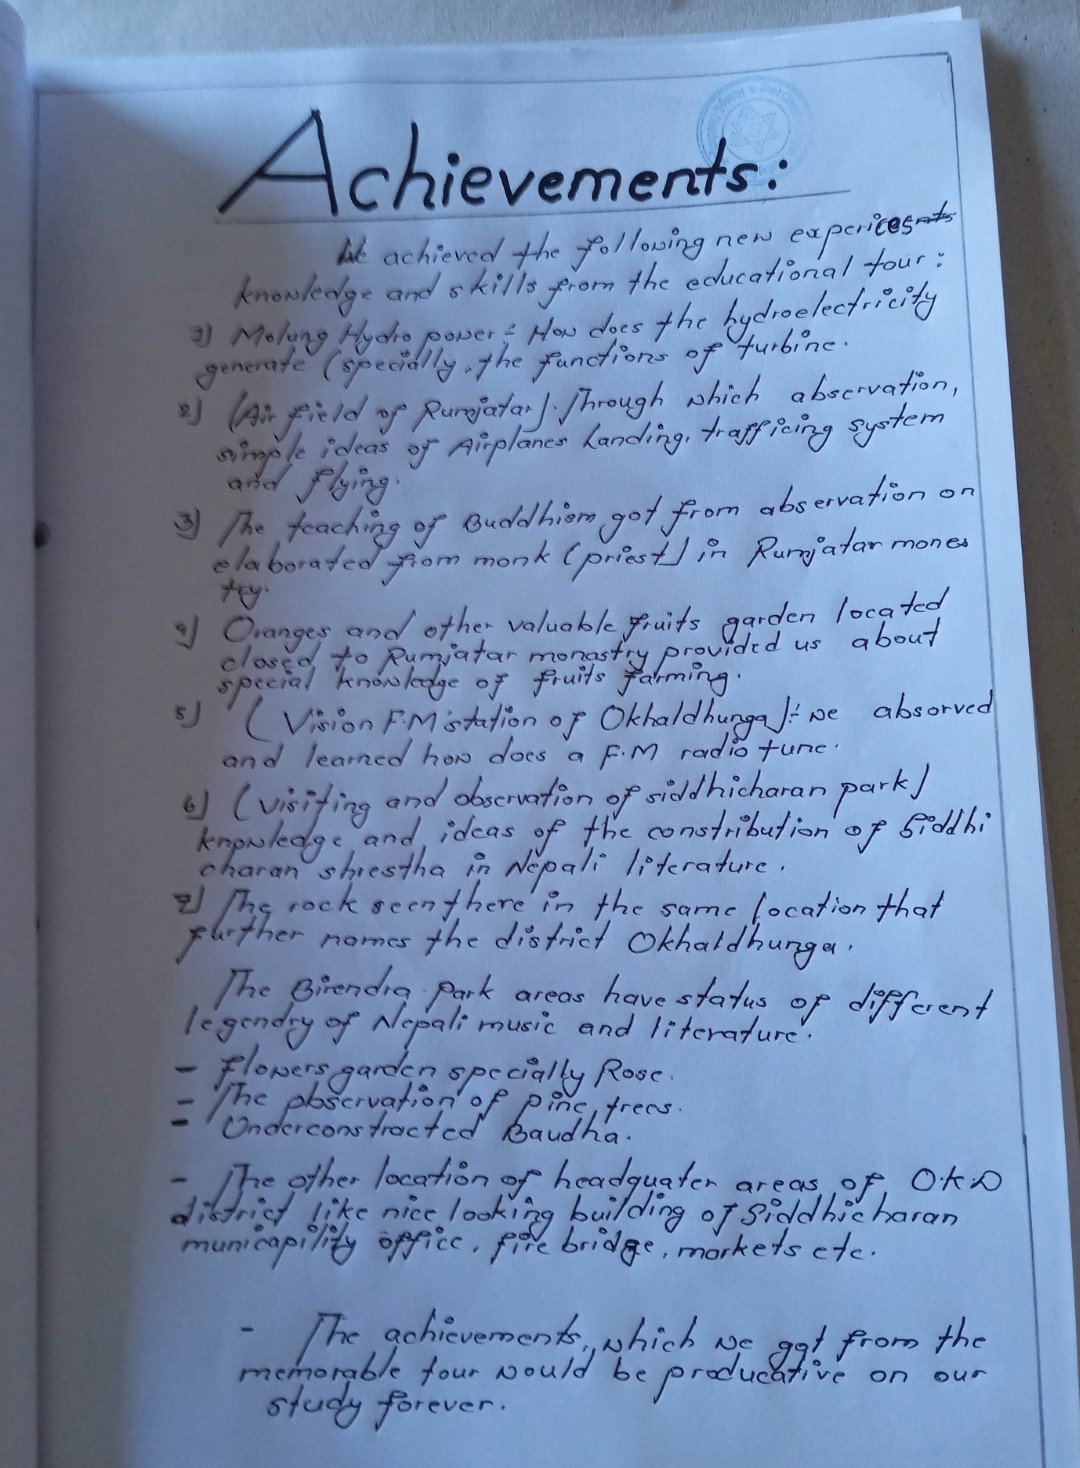 Achievements:
We achieved the following new experices
knowledge and skills from the educational tour:
1) Molung Hydro power:- How does the hydroelectricity
generate (specially, the functions of turbine.
2) (Air field of Rumjatar). Through which abservation,
simple ideas of Airplanes Landing, trafficing system
and flying.
3) The teaching of Buddhism got from abservation on
elaborated from monk (priest) in Rumjatar mones
try.
4) Oranges and other valuable fruits garden located
closed to Rumjatar monastry provided us about
special knowledge of fruits farming.
5) (Vision F.M station of Okhaldhunga):- we absorved
and learned how does a F.M radio tune.
6) (visiting and observation of siddhicharan park)
knowledge and ideas of the constribution of Siddhi
charan shrestha in Nepali literature.
7) The rock seen there in the same location that
further names the district Okhaldhunga.
The Birendra Park areas have status of different
legendry of Nepali music and literature.
- flowers garden specially Rose.
- The observation of pine trees.
- Underconstracted Baudha.
- The other location of headquater areas of O.K.D
district like nice looking building of Siddhicharan
municapility office, fire bridge, markets etc.
- The achievements, which we got from the
memorable tour would be producative on our
study forever.